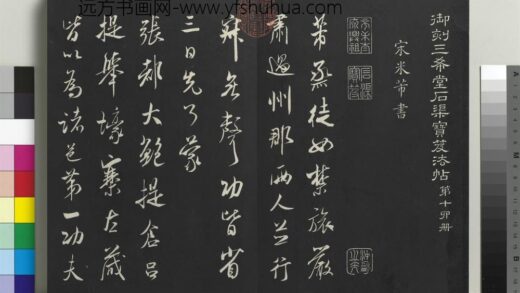 远方书画网-www.yfshuhua.com
御刻三希堂石渠寶笈法帖 第十四册
宋米芾書
芾烝徒如禁旅嚴
肅過州郡兩人並行
寂無聲功皆省
三日先了蒙
張都大鮑提倉呂
提舉壕寨左藏
皆以為諸邑第一功夫